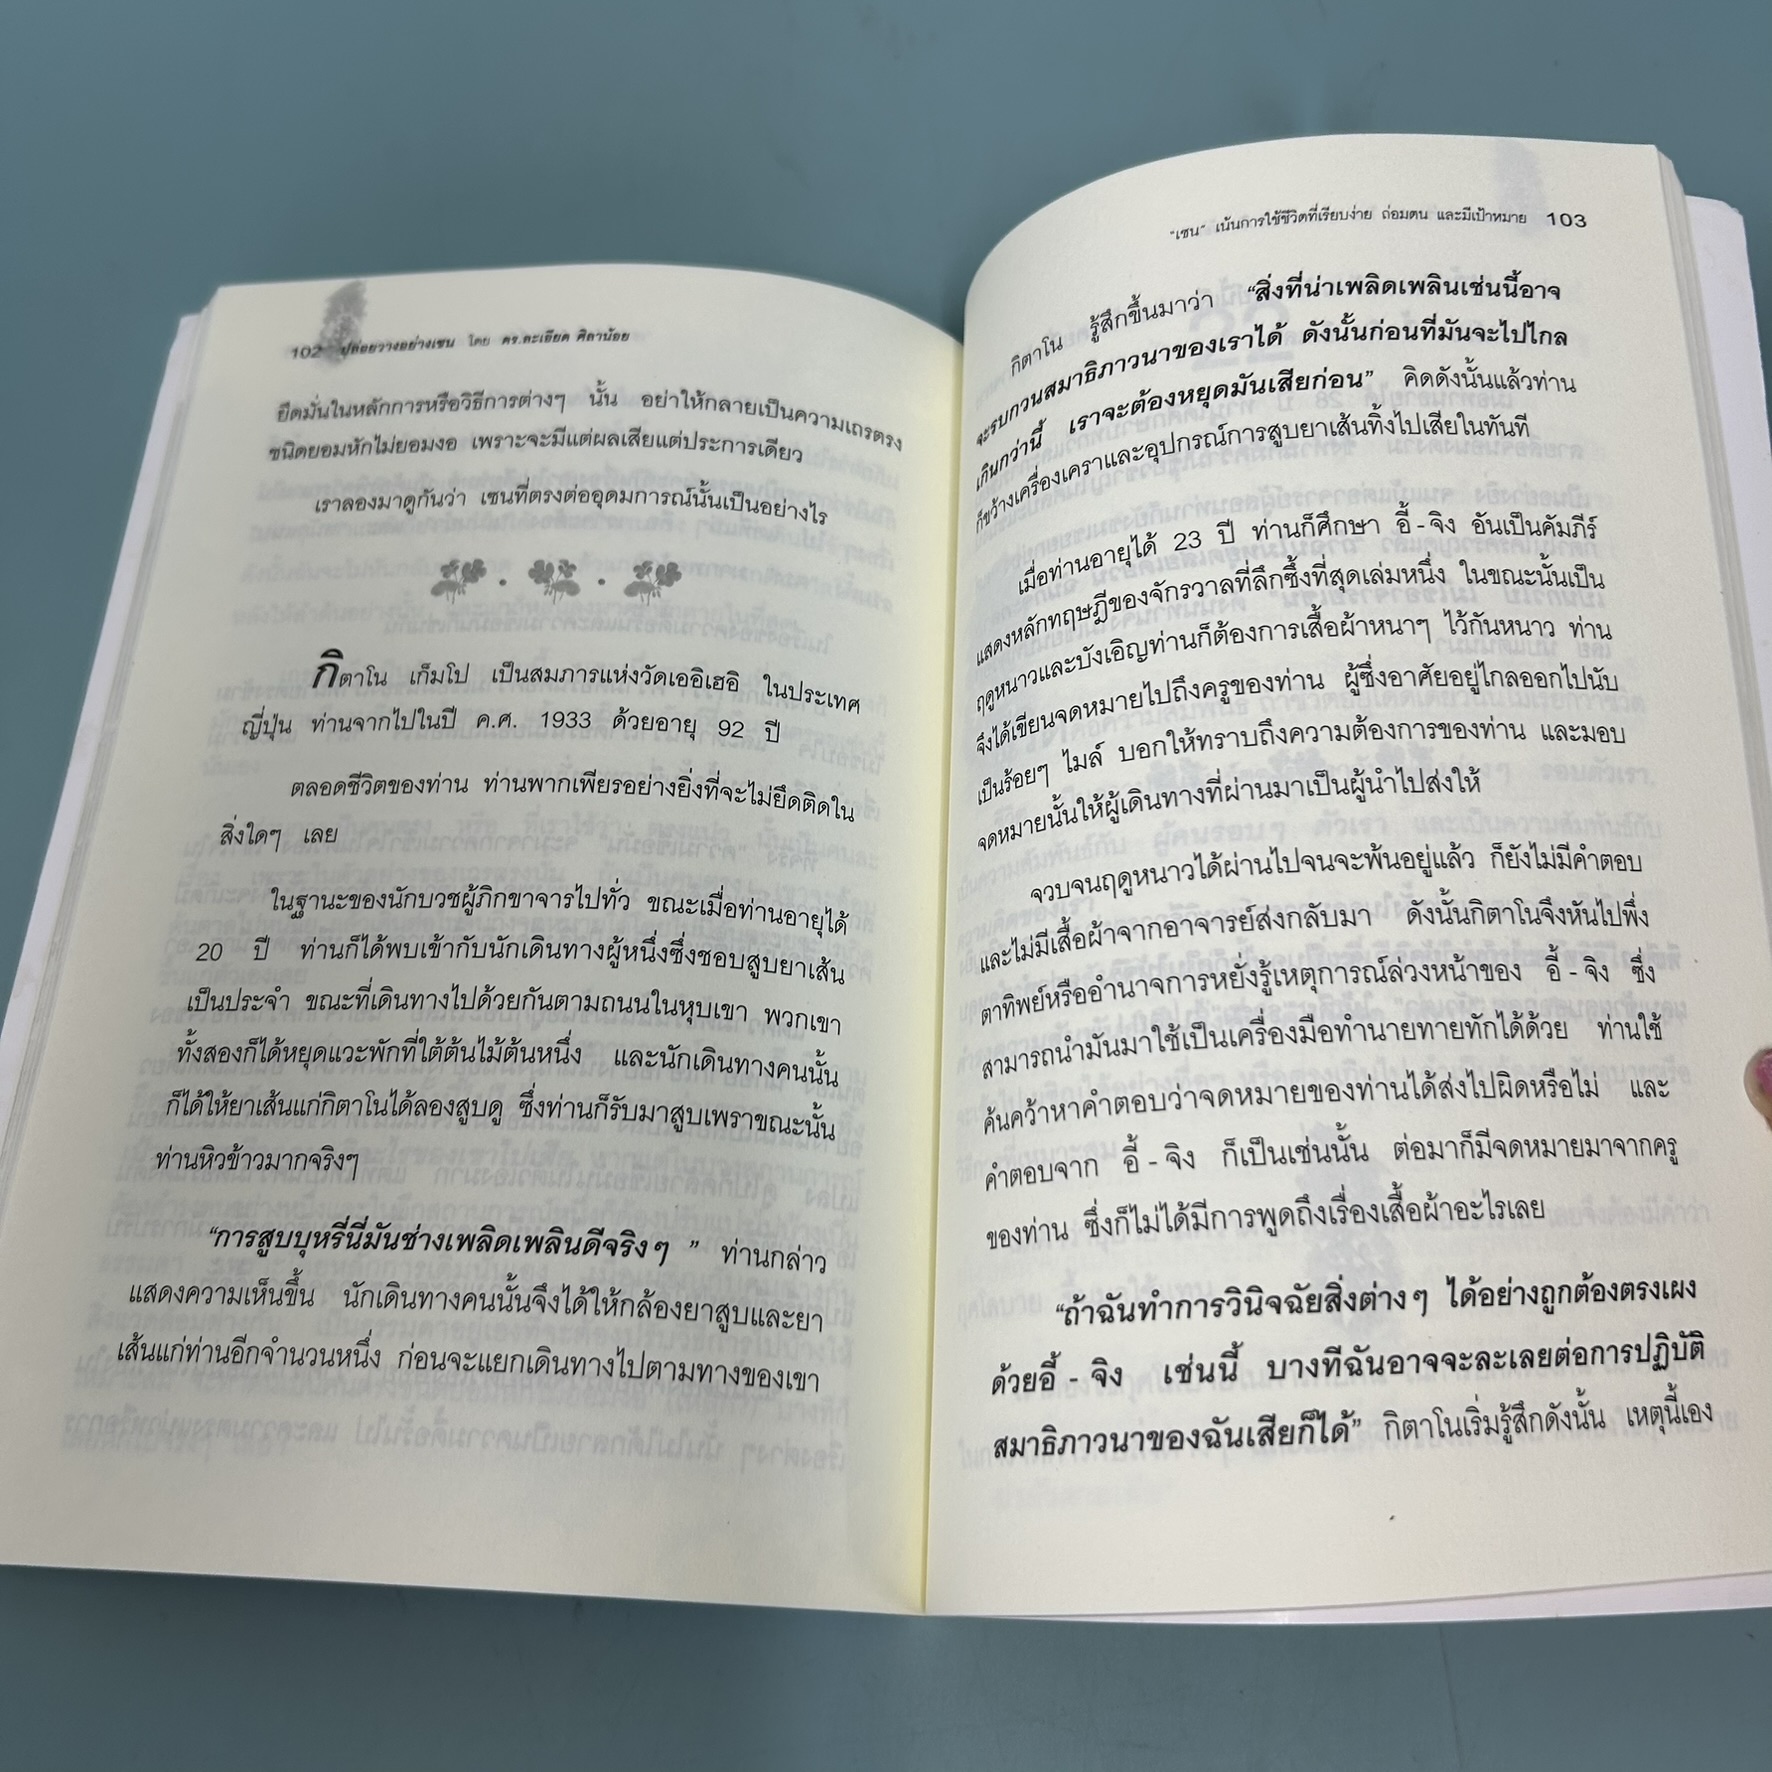 102 ปล่อยวางอย่างเซน โดย ดร.ละเอียด ศิลาน้อย
ยึดมั่นในหลักการหรือวิธีการต่างๆ นั้น อย่าให้กลายเป็นความเถรตรง
ชนิดยอมหักไม่ยอมงอ เพราะจะมีแต่ผลเสียแต่ประการเดียว
เราลองมาดูกันว่า เซนที่ตรงต่ออุดมการณ์นั้นเป็นอย่างไร
กิตาโน เก็มโป เป็นสมภารแห่งวัดเออิเฮอิ ในประเทศ
ญี่ปุ่น ท่านจากไปในปี ค.ศ. 1933 ด้วยอายุ 92 ปี
ตลอดชีวิตของท่าน ท่านพากเพียรอย่างยิ่งที่จะไม่ยึดติดใน
สิ่งใดๆ เลย
ในฐานะของนักบวชผู้ภิกขาจารไปทั่ว ขณะเมื่อท่านอายุได้
20 ปี ท่านก็ได้พบเข้ากับนักเดินทางผู้หนึ่งซึ่งชอบสูบยาเส้น
เป็นประจำ ขณะที่เดินทางไปด้วยกันตามถนนในหุบเขา พวกเขา
ทั้งสองก็ได้หยุดแวะพักที่ใต้ต้นไม้ต้นหนึ่ง และนักเดินทางคนนั้น
ก็ได้ให้ยาเส้นแก่กิตาโนได้ลองสูบดู ซึ่งท่านก็รับมาสูบเพราะขณะนั้น
ท่านหิวข้าวมากจริงๆ
“การสูบบุหรี่นี่มันช่างเพลิดเพลินดีจริงๆ ” ท่านกล่าว
แสดงความเห็นขึ้น นักเดินทางคนนั้นจึงได้ให้กล้องยาสูบและยา
เส้นแก่ท่านอีกจำนวนหนึ่ง ก่อนจะแยกเดินทางไปตามทางของเขา
“เซน” เน้นการใช้ชีวิตที่เรียบง่าย ถ่อมตน และมีเป้าหมาย 103
กิตาโน รู้สึกขึ้นมาว่า “สิ่งที่น่าเพลิดเพลินเช่นนี้อาจ
จะรบกวนสมาธิภาวนาของเราได้ ดังนั้นก่อนที่มันจะไปไกล
เกินกว่านี้ เราจะต้องหยุดมันเสียก่อน” คิดดังนั้นแล้วท่าน
ก็ขว้างเครื่องเคราและอุปกรณ์การสูบยาเส้นทิ้งไปเสียในทันที
เมื่อท่านอายุได้ 23 ปี ท่านก็ศึกษา อี้ - จิง อันเป็นคัมภีร์
แสดงหลักทฤษฎีของจักรวาลที่ลึกซึ้งที่สุดเล่มหนึ่ง ในขณะนั้นเป็น
ฤดูหนาวและบังเอิญท่านก็ต้องการเสื้อผ้าหนาๆ ไว้กันหนาว ท่าน
จึงได้เขียนจดหมายไปถึงครูของท่าน ผู้ซึ่งอาศัยอยู่ไกลออกไปนับ
เป็นร้อยๆ ไมล์ บอกให้ทราบถึงความต้องการของท่าน และมอบ
จดหมายนั้นให้ผู้เดินทางที่ผ่านมาเป็นผู้นำไปส่งให้
จวบจนฤดูหนาวได้ผ่านไปจนจะพ้นอยู่แล้ว ก็ยังไม่มีคำตอบ
และไม่มีเสื้อผ้าจากอาจารย์ส่งกลับมา ดังนั้นกิตาโนจึงหันไปพึ่ง
ตาทิพย์หรืออำนาจการหยั่งรู้เหตุการณ์ล่วงหน้าของ อี้ - จิง ซึ่ง
สามารถนำมันมาใช้เป็นเครื่องมือทำนายทายทักได้ด้วย ท่านใช้
ค้นคว้าหาคำตอบว่าจดหมายของท่านได้ส่งไปผิดหรือไม่ และ
คำตอบจาก อี้ - จิง ก็เป็นเช่นนั้น ต่อมาก็มีจดหมายมาจากครู
ของท่าน ซึ่งก็ไม่ได้มีการพูดถึงเรื่องเสื้อผ้าอะไรเลย
“ถ้าฉันทำการวินิจฉัยสิ่งต่างๆ ได้อย่างถูกต้องตรงเผง
ด้วยอี้ - จิง เช่นนี้ บางทีฉันอาจจะละเลยต่อการปฏิบัติ
สมาธิภาวนาของฉันเสียก็ได้” กิตาโนเริ่มรู้สึกดังนั้น เหตุนี้เอง